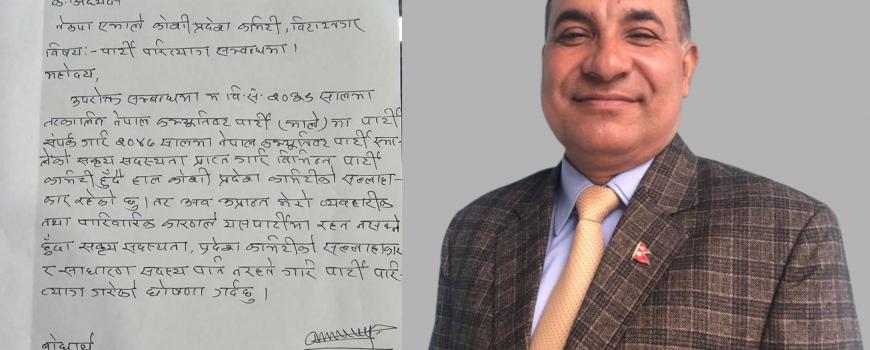 नेकपा एमाले कोशी प्रदेश कमिटी, विराटनगर
विषय:- पार्टी परित्याग सम्बन्धमा।
महोदय,
उपरोक्त सम्बन्धमा म वि.सं. २०४३ सालमा
तत्कालित नेपाल कम्युनिस्ट पार्टी (माले) मा पार्टी
संपर्क गरि २०४८ सालमा नेपाल कम्युनिस्ट पार्टी एमा-
लेको सकृय सदस्यता प्राप्त गरि विभिन्न पार्टी
कमिटी हुँदै हाल कोशी प्रदेश कमिटीको सल्लाहा-
कार रहेको छु। तर अब उप्रान्त मेरो व्यवहारीक
तथा पारिवारिक कारणले यसपार्टीमा रहन नसक्ने
हुँदा सकृय सदस्यता, प्रदेश कमिटीको सल्लाहाकार
र साधारण सदस्य पनि नरहने गरि पार्टी परि-
त्याग गरेको घोषणा गर्दछु।
बोधार्थ